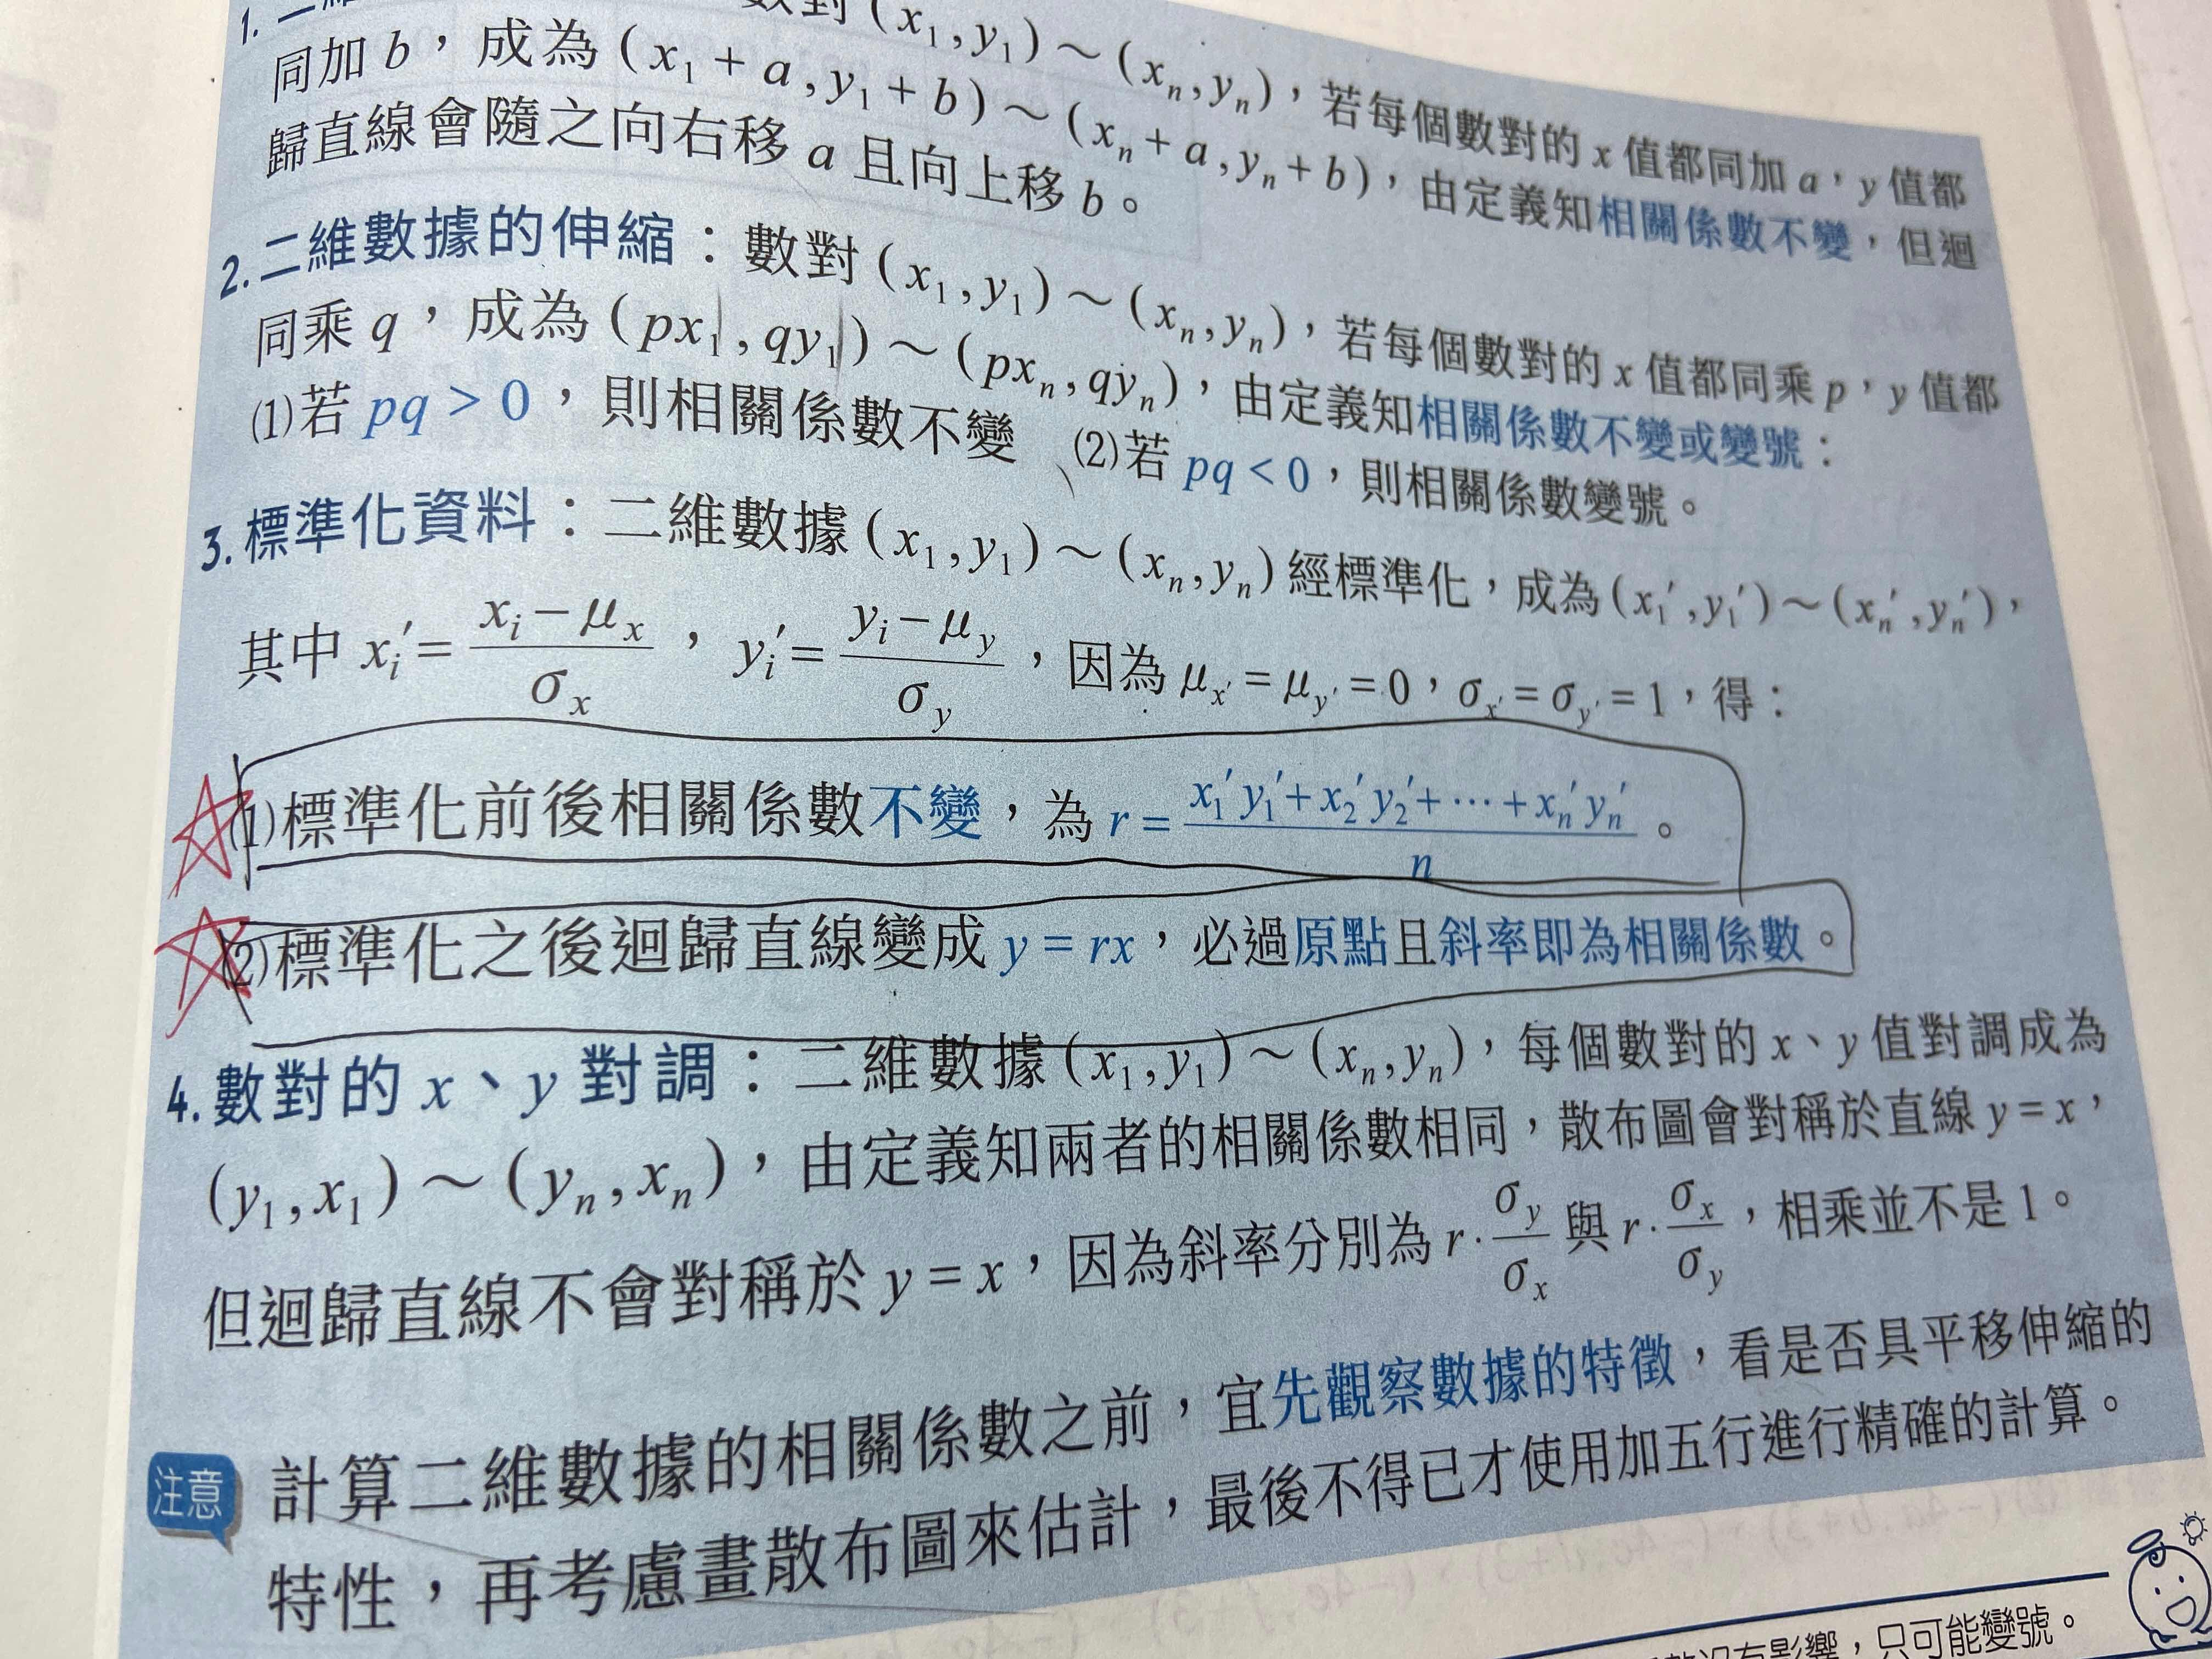 1. 二維 數對 (x₁,y₁)～(xₙ,yₙ),若每個數對的 x 值都同加 a,y 值都
同加 b,成為 (x₁+a,y₁+b)～(xₙ+a,yₙ+b),由定義知相關係數不變,但迴
歸直線會隨之向右移 a 且向上移 b。
2. 二維數據的伸縮:數對 (x₁,y₁)～(xₙ,yₙ),若每個數對的 x 值都同乘 p,y 值都
同乘 q,成為 (px₁,qy₁)～(pxₙ,qyₙ),由定義知相關係數不變或變號:
(1)若 pq > 0,則相關係數不變 (2)若 pq < 0,則相關係數變號。
3. 標準化資料:二維數據 (x₁,y₁)～(xₙ,yₙ) 經標準化,成為 (x₁′,y₁′)～(xₙ′,yₙ′),
其中 xᵢ′ = (xᵢ − μₓ)/σₓ,yᵢ′ = (yᵢ − μ_y)/σ_y,因為 μₓ′ = μ_y′ = 0,σₓ′ = σ_y′ = 1,得:
(1)標準化前後相關係數不變,為 r = (x₁′y₁′+x₂′y₂′+⋯+xₙ′yₙ′)/n。
(2)標準化之後迴歸直線變成 y = rx,必過原點且斜率即為相關係數。
4. 數對的 x、y 對調:二維數據 (x₁,y₁)～(xₙ,yₙ),每個數對的 x、y 值對調成為
(y₁,x₁)～(yₙ,xₙ),由定義知兩者的相關係數相同,散布圖會對稱於直線 y = x,
但迴歸直線不會對稱於 y = x,因為斜率分別為 r·σ_y/σₓ 與 r·σₓ/σ_y,相乘並不是 1。
注意 計算二維數據的相關係數之前,宜先觀察數據的特徵,看是否具平移伸縮的
特性,再考慮畫散布圖來估計,最後不得已才使用加五行進行精確的計算。
沒有影響,只可能變號。